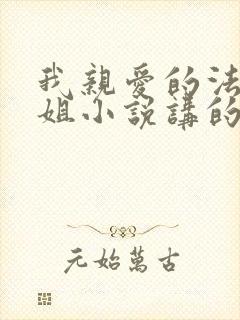 我親愛的法
姐小說講的
元始萬古